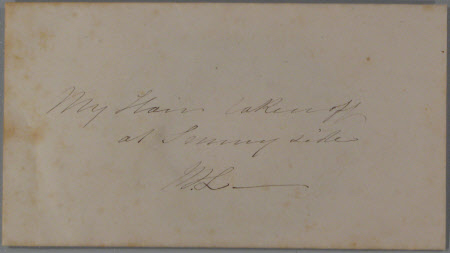 My Hair taken off
at Sunny side
M.L